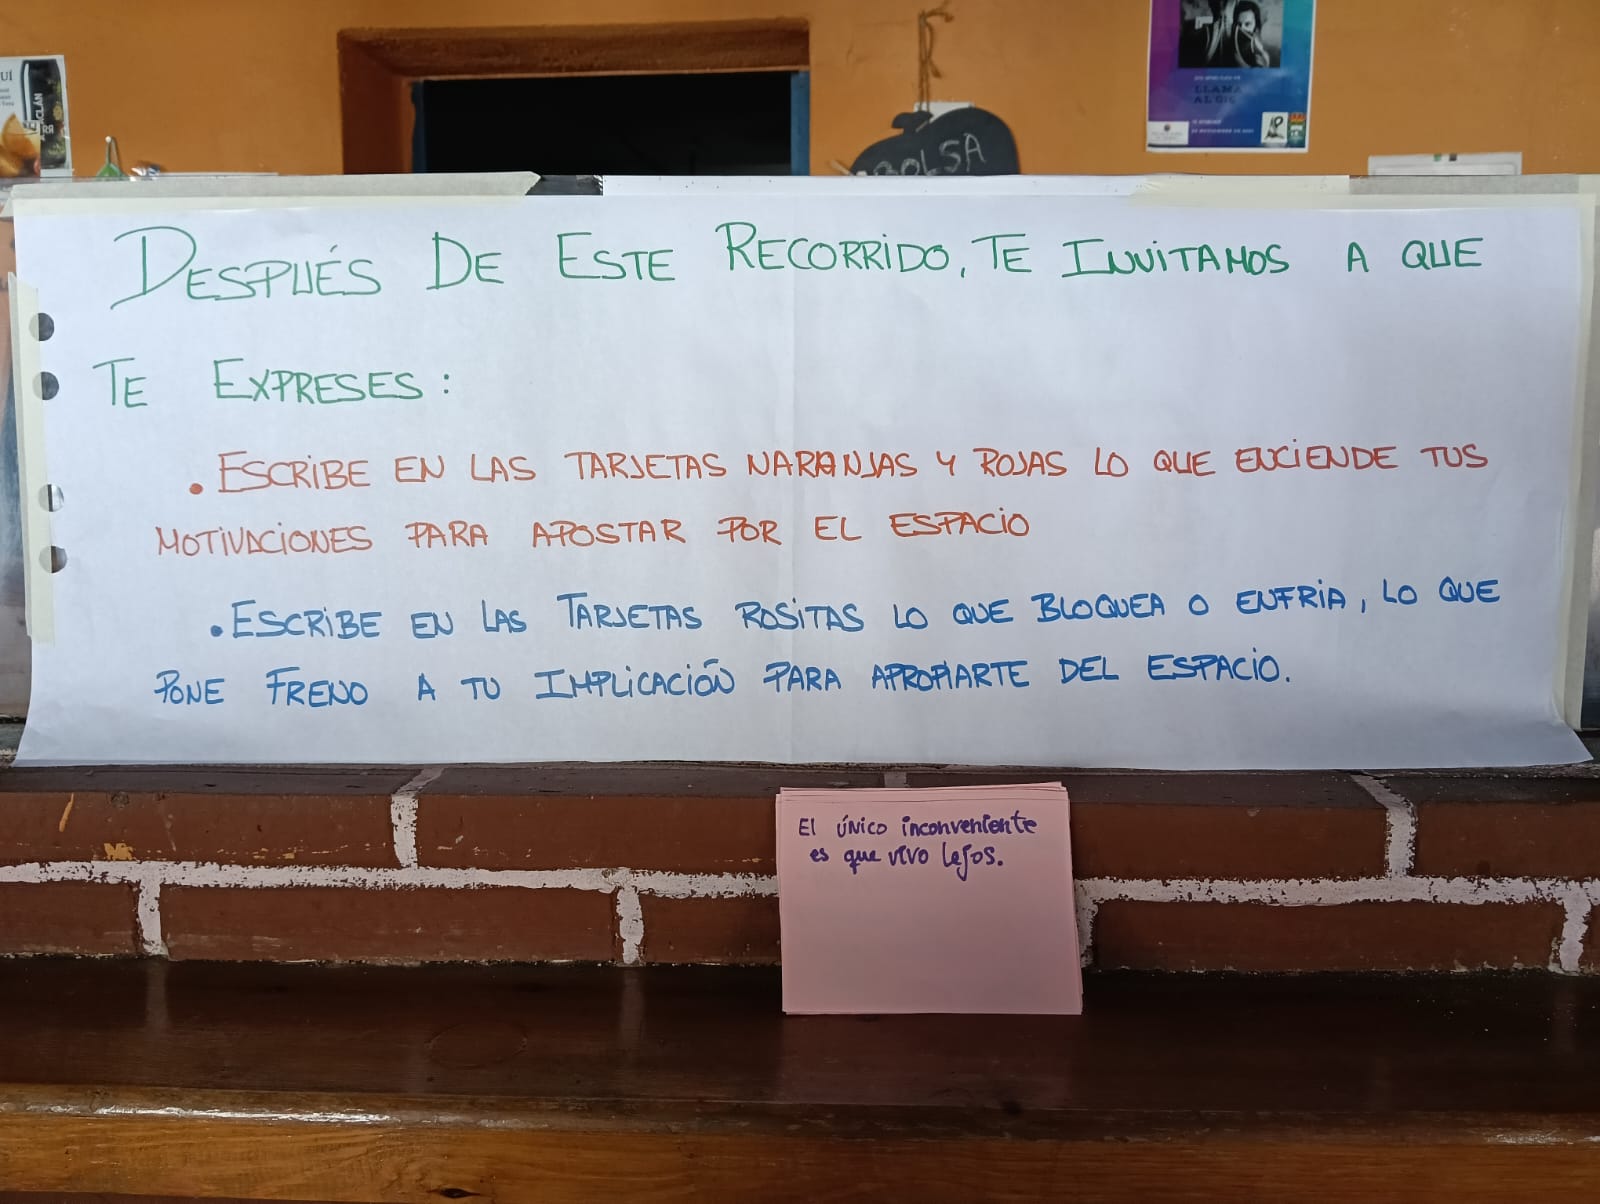 UÍ
BOLSA
LLAMA
DESPUÉS DE ESTE RECORRIDO, TE INVITAMOS A QUE
TE EXPRESES:
. ESCRIBE EN LAS TARJETAS NARANJAS Y ROJAS LO QUE ENCIENDE TUS
MOTIVACIONES PARA APOSTAR POR EL ESPACIO
. ESCRIBE EN LAS TARJETAS ROSITAS LO QUE BLOQUEA O ENFRIA, LO QUE
PONE FRENO A TU IMPLICACIÓN PARA APROPIARTE DEL ESPACIO.
El único inconveniente
es que vivo lejos.